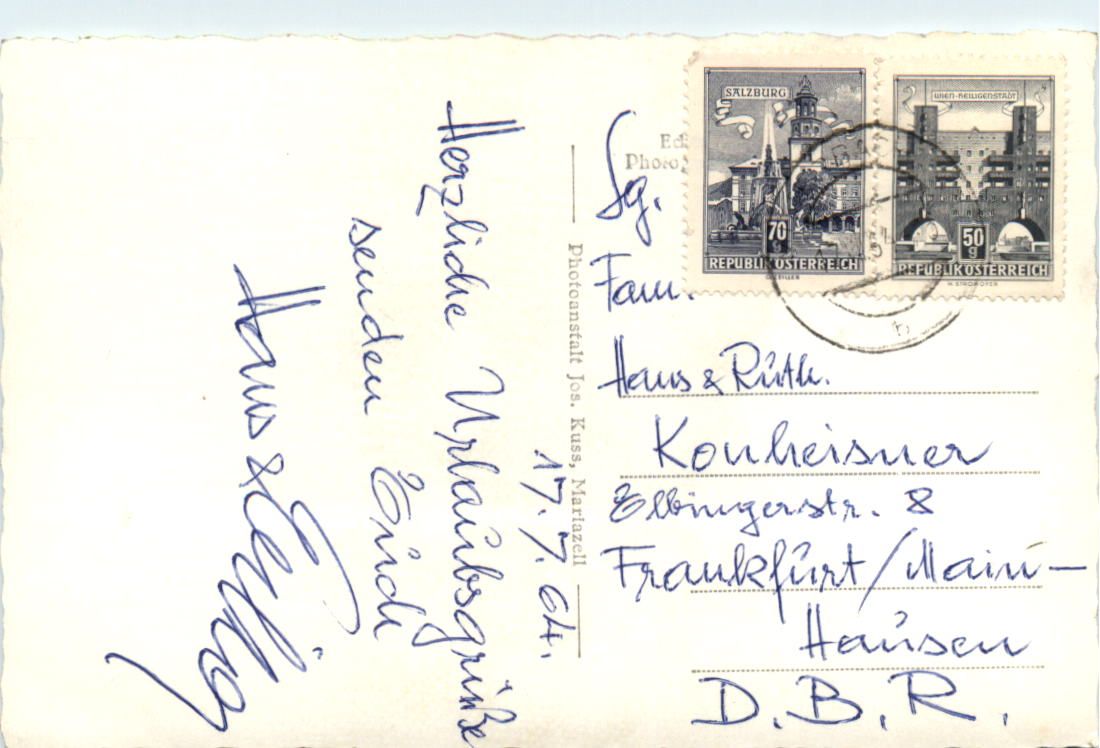 17. 7. 64.
Herzliche Urlaubsgrüße
senden Euch
Hans &
Photoanstalt Jos. Kuss, Mariazell
Photo
SALZBURG
70
g
REPUBLIK ÖSTERREICH
WIEN-HEILIGENSTADT
50
g
REPUBLIK ÖSTERREICH
Sg.
Fam.
Hans & Ruth.
Konheisner
Elbingerstr. 8
Frankfurt/Main-
Hausen
D.B.R.